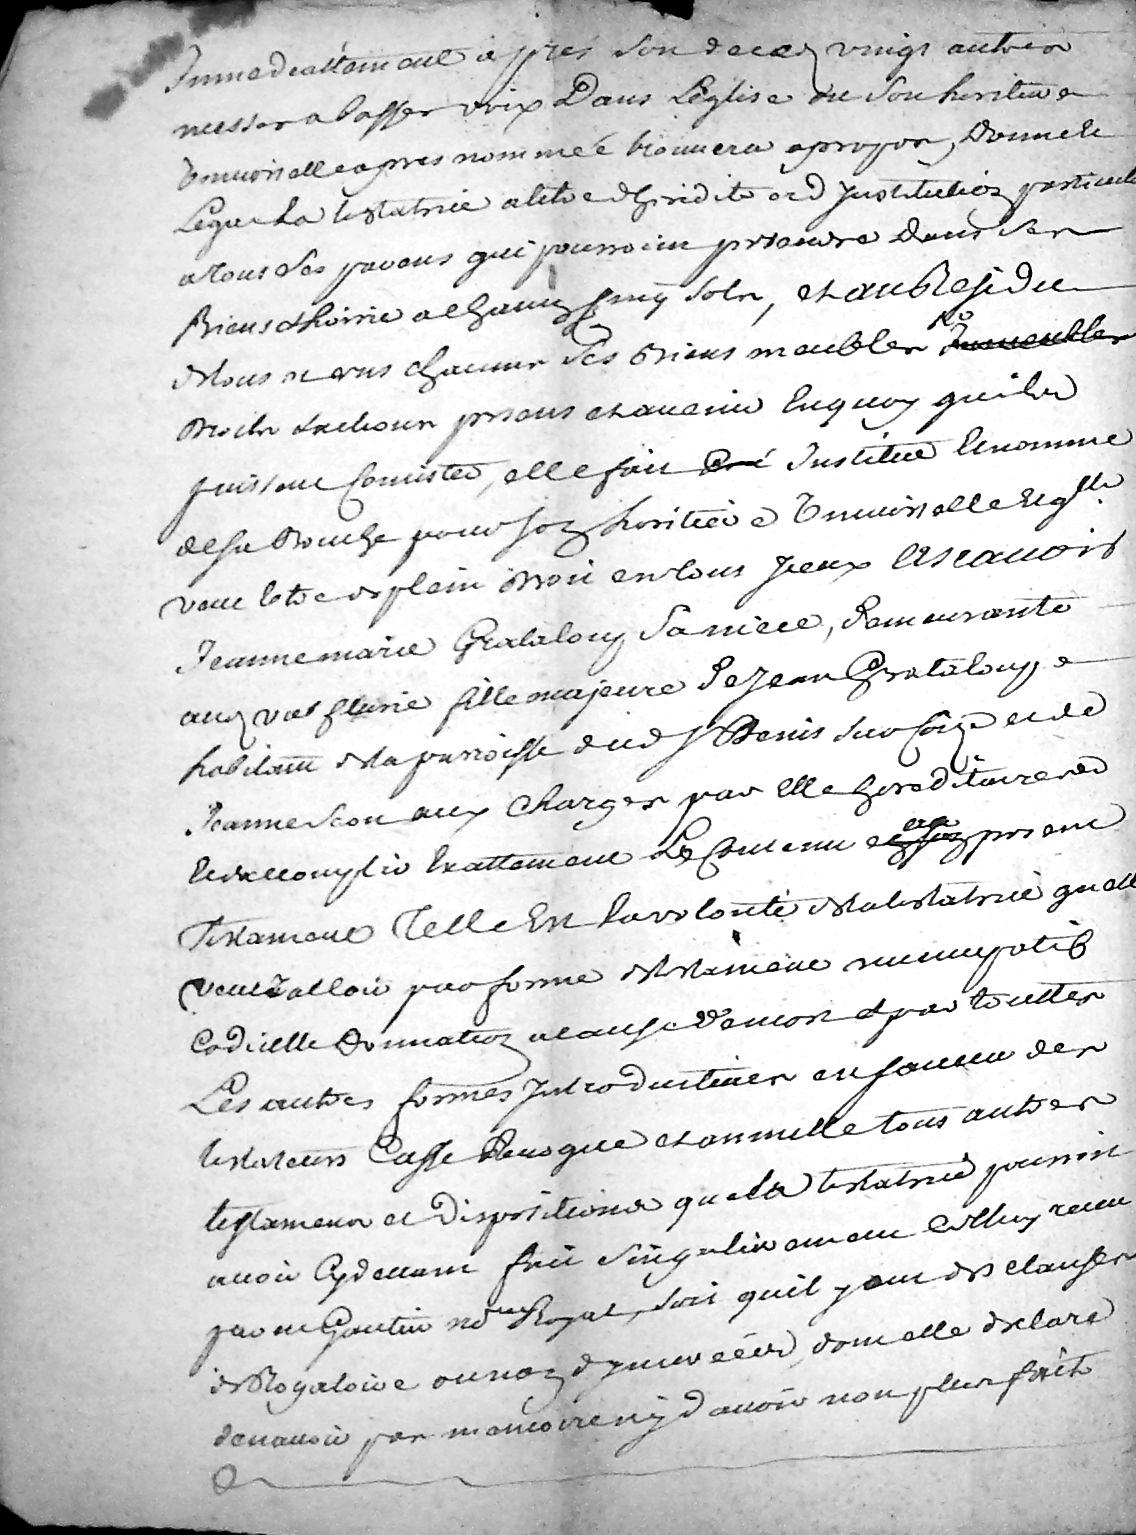 Immediatement apres son deceds vingt autres
messes a basses voix Dans L'eglise ou son heritiere
universelle apres nommée trouvera apropos, Donne et
Legue La testatrice a titre d'hiridité et d'Institution particul
a tous ses parens qui pourroint pretendre Dans ses
Biens et hoirie a Chacun Cinq sols, et au Residu
de tous et uns chacuns ses Biens meubles No Immeubles
droits et actions presens et avenir En quoy qu'ils
puissent Consister, elle fait Cré Institue Et nomme
de sa Bouche pour son heritiere Universelle Et glle
veut etre de plein droit en tous Iceux Est a avoir
Jeanne marie Grataloup sa niece, Demeurante
au val fleurie fille majeure de Jean Grataloup
habitant de la parroisse dud St Denis sur Coize et de
Jeanne Seon aux Charges par Elle hereditairement
Et d'accomplir Exattement Le Contenu en son present
Testament Telle Est la volonté de la testatrice qu'elle
veut valloir par forme de testament nuncupatif
Codicille Donnation a cause de mort et par touttes
Les autres formes Introductives en faveur des
testateurs Casse Revoque et annulle tous autres
testamens et Dispositions que la testatrice pourroit
avoir Cy devant fait singulierement Celluy receu
par me Gautier nore Royal, soit qu'il y eut des clauses
de Rogatoire ou non d'y inserées, dont elle declare
de n'avoir pas memoire ny d'avoir non plus fait